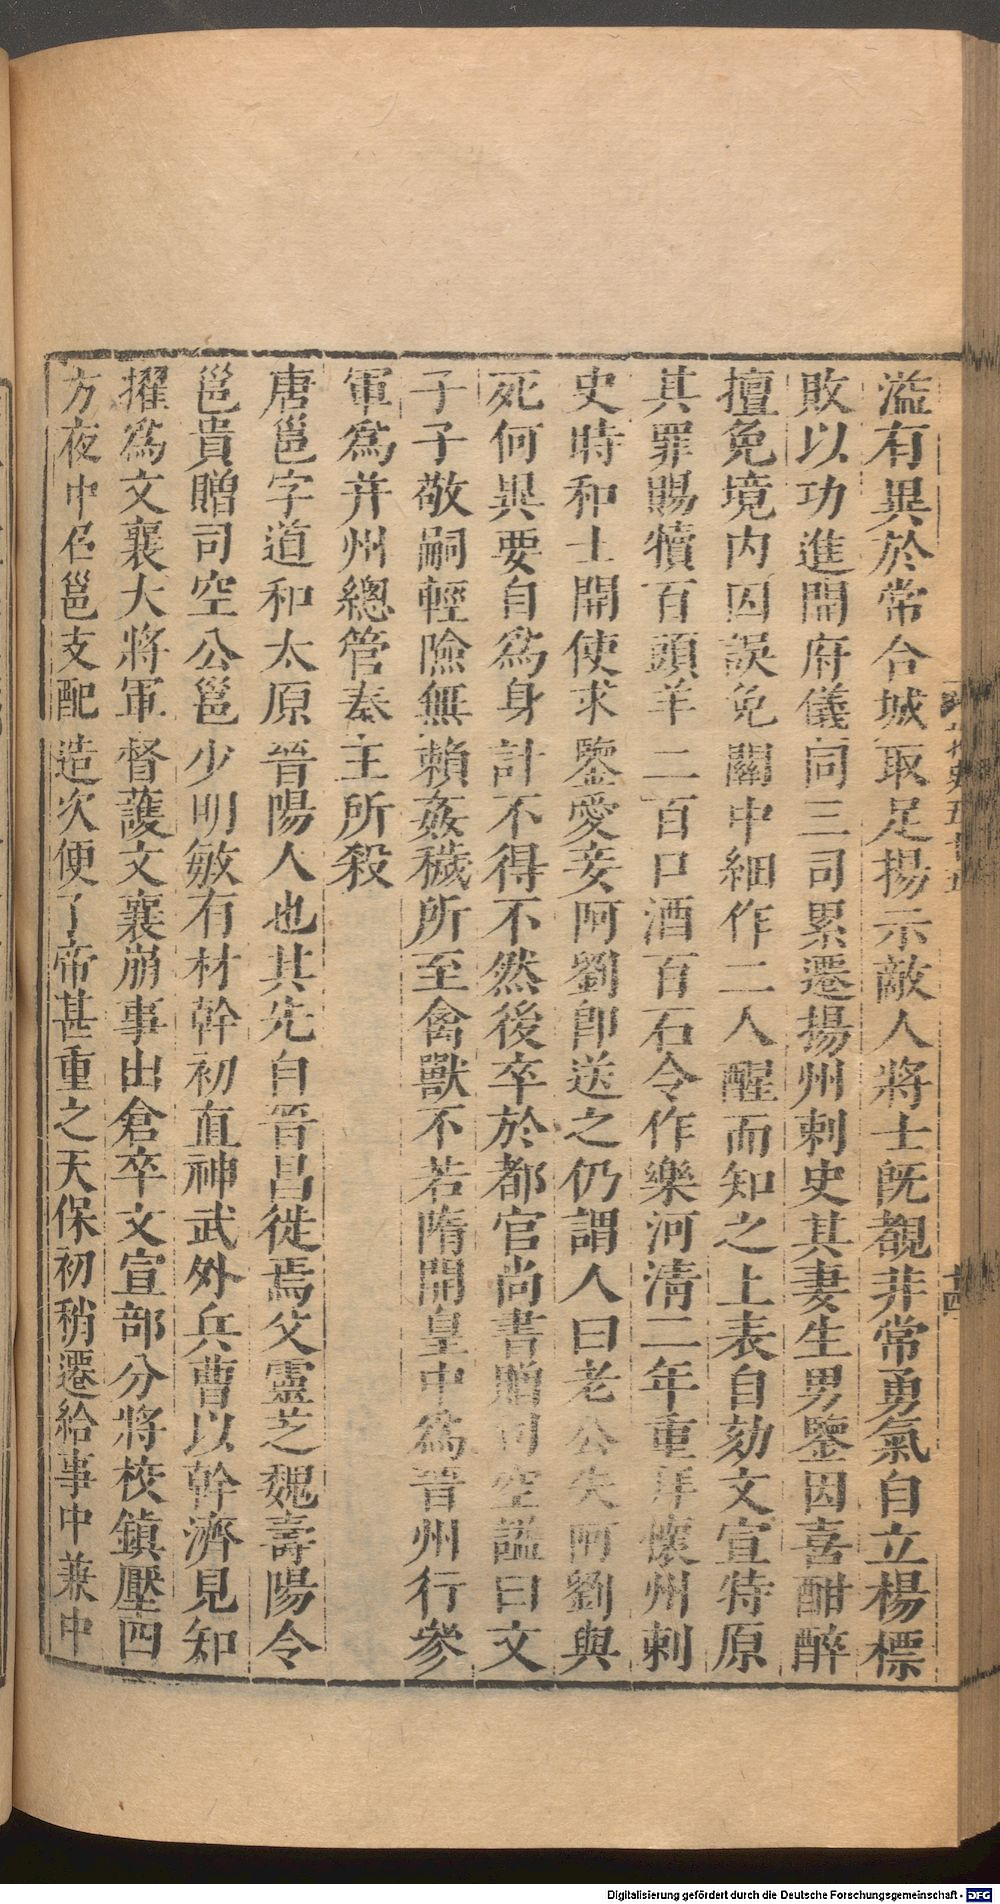 溢有異於常合城取足揚示敵人將士旣覩非常勇氣自立楊標
敗以功進開府儀同三司累遷揚州刺史其妻生男鑒因喜酣醉
擅免境内囚誤免關中細作二人醒而知之上表自劾文宣特原
其罪賜犢百頭羊二百口酒百石令作樂河清二年重拜懷州刺
史時和士開使求鑒愛妾阿劉卽送之仍謂人曰老公失阿劉與
死何異要自爲身計不得不然後卒於都官尚書贈司空謚曰文
子子敬嗣輕險無賴姦穢所至禽獸不若隋開皇中爲晉州行參
軍爲并州總管秦王所殺
唐邕字道和太原晉陽人也其先自晉昌徙焉父靈芝魏壽陽令
邕貴贈司空公邕少明敏有材幹初直神武外兵曹以幹濟見知
擢爲文襄大將軍督護文襄崩事出倉卒文宣部分將校鎮壓四
方夜中召邕支配造次便了帝甚重之天保初稍遷給事中兼中
十四
Digitalisierung gefördert durch die Deutsche Forschungsgemeinschaft - DFG